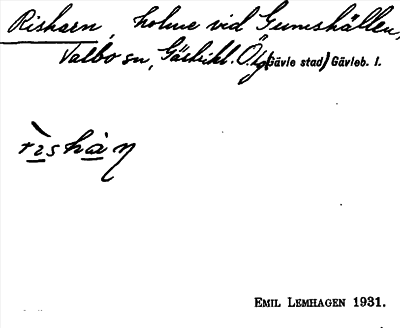 Risharn, holme vid Gumshällen,
Valbo sn, Gästrikl. Ö. (Gävle stad) Gävleb. l.
rìshàn
EMIL LEMHAGEN 1931.